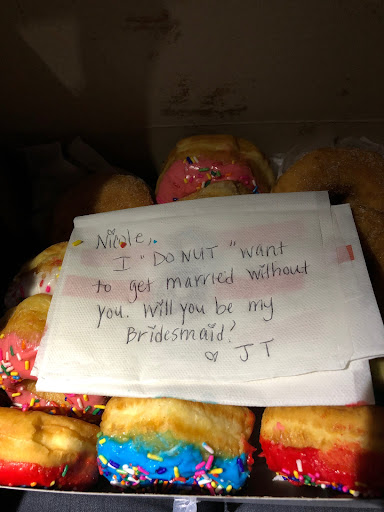 Nicole,
I "DONUT" want
to get married without
you. Will you be my
Bridesmaid?
♡ JT